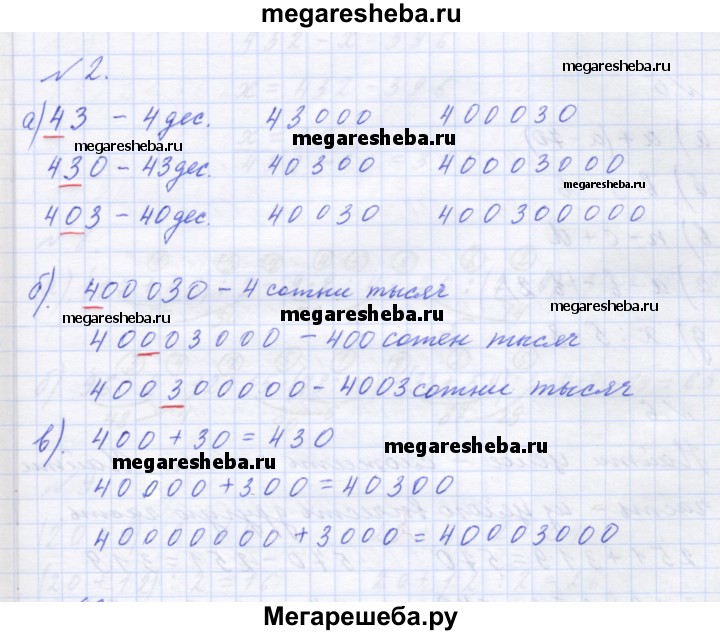 megaresheba.ru
№ 2.
megaresheba.ru
а) 43 – 4 дес. 43000 400030
megaresheba.ru
megaresheba.ru
430 – 43 дес. 40300 40003000
megaresheba.ru
403 – 40 дес. 40030 400300000
б). 400030 – 4 сотни тысяч
megaresheba.ru
megaresheba.ru
megaresheba.ru
40003000 – 400 сотен тысяч
400300000 – 4003 сотни тысяч
в). 400 + 30 = 430
megaresheba.ru
megaresheba.ru
40000 + 300 = 40300
40000000 + 3000 = 40003000
Мегарешеба.ру